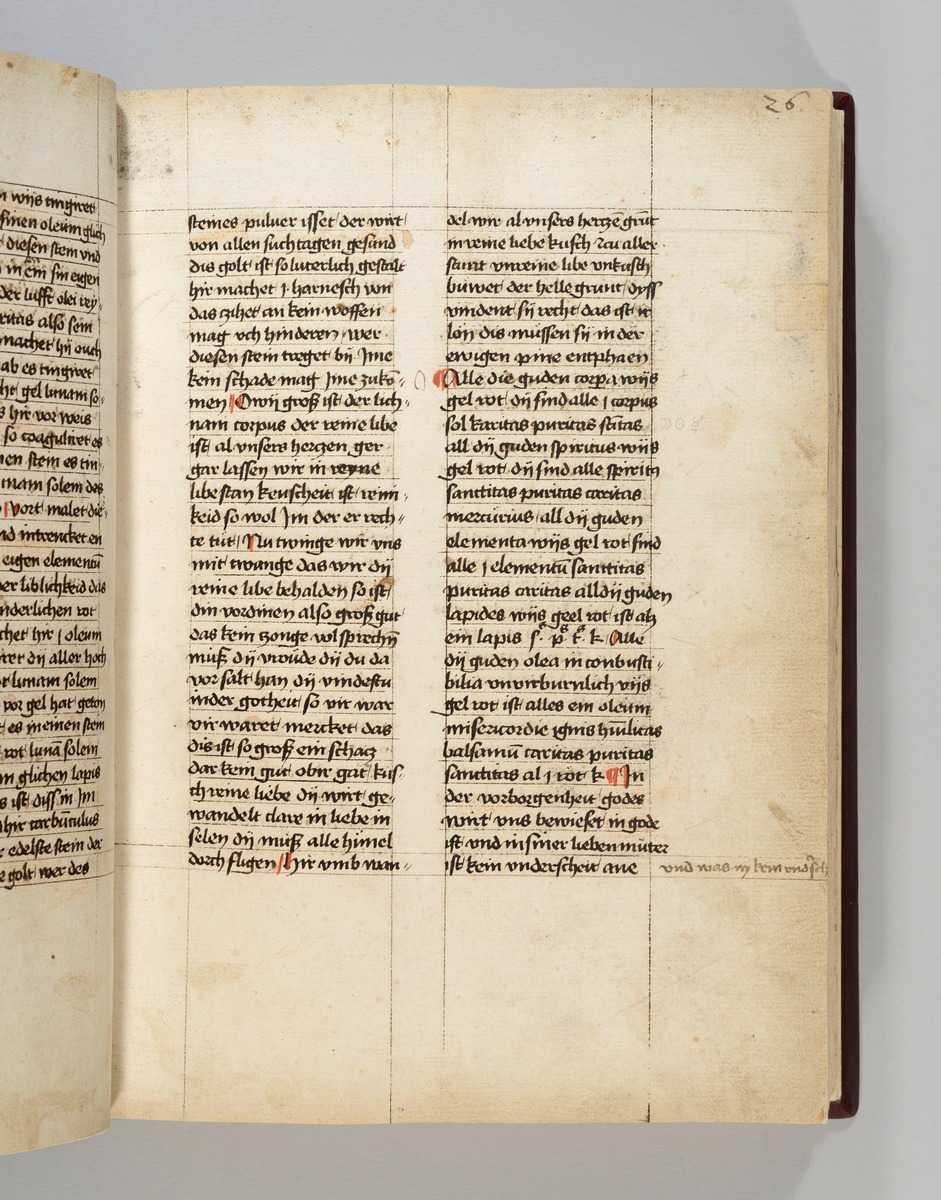 26
n wijs tingiret
sinen oleum glich
diesen stein vnd
in ein sin eigen
der lufft olei
ritas also sein
machet hij ouch
ab es tingiret
ht gel lunam so
s hir vor weis
so coaguliret es
en stein es tin
nam solem des
vort malet die
nd intrencket en
eigen elementū
er liblichkeid das
nderlichen rot
chet hir j oleum
rer dij aller hoch
lunam solem
vor gel hat geton
t es in einen stem
rot lunā solem
m glichen lapis
s ist diss in jm
hir carbūculus
r edelste stein der
e golt wer des
steines puluer isset der wirt
von allen suchtagen gesund
dis golt ist so luterlich gestalt
hir machet j harnesch von
das zihet an kein woffen
mag vch hinderen wer
diesen stein treget bij Jme
kein schade mag Jme zukō-
men Owij groß ist der lich-
nam corpus der reine libe
ist al vnsers herzen ger
gar lassen wir in reyne
libe stan keuscheit ist reini-
keid so wol Jm der er rech-
te tut Nu twinge wir vns
mit twange das wir dij
reine libe behalden so ist
din vordinen also groß gut
das kein zonge volsprechn̄
muß dij vroude dij du da
vor salt han dij vindestu
inder gotheit so vir war
vir waret mercket das
dis ist so groß ein schacz
dar kein gut obir gat kus-
ch reine liebe dij wirt ge-
wandelt clare in liebe in
selen dij muß alle himel
dorch fligen hir vmb wan-
del wir al vnsers hercze grūt
in reine liebe kusch zu aller
stunt vnreine libe vnkusch
buwet der helle grunt dyss
vindent sij recht das ist ir
lon dis mussen sij in der
ewigen pine entphaen
Alle die guden corpa wijs
gel rot dij sind alle j corpus
sol karitas puritas sc̄titas
all dij guden spiritus wijs
gel rot dij sind alle spiritus
sanctitas puritas caritas
mercurius all dij guden
elementa wijs gel rot sind
alle j elementū sanctitas
puritas caritas all dij guden
lapides wijs geel rot ist als
ein lapis s. p. k. Alle
dij guden olea in conbusti-
bilia vnvirburnlich wijs
gel rot ist alles ein oleum
misericordie ignis hūilitas
balsamū caritas puritas
sanctitas al j rot k. In
der vorborgenheit godes
wirt vns bewiset in gode
ist vnd in siner lieben muter
ist kein vnderscheit aue
vnd was nÿ kein vndsch